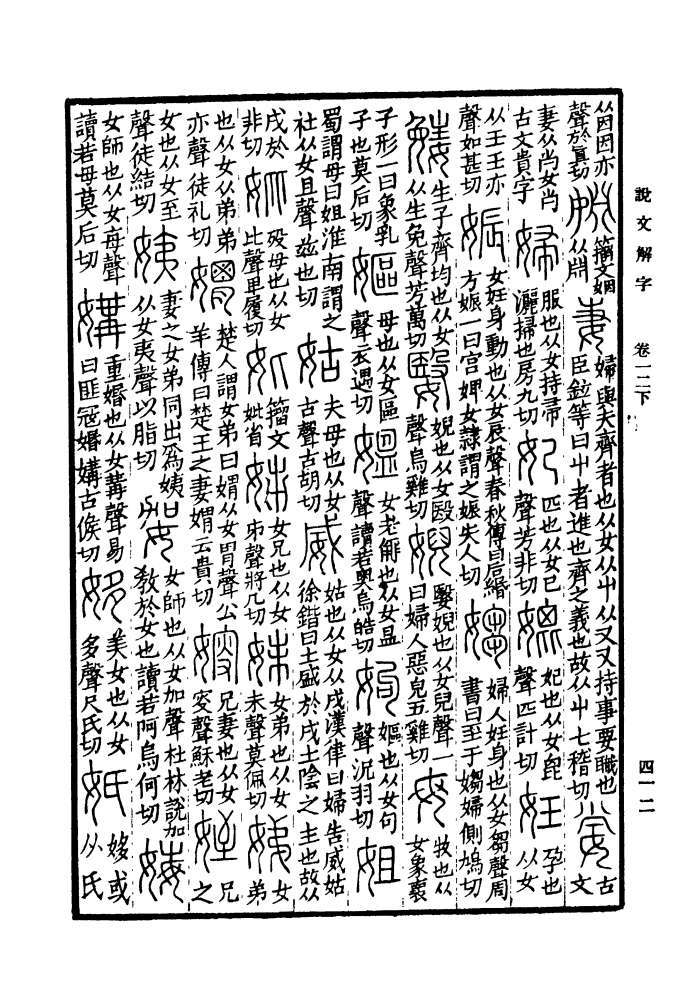 說文解字
卷一二下
四一二
从因因亦聲於眞切 婣 籒文姻从𣶒 妻 婦與夫齊者也从女从屮从又又持事妻職也臣鉉等曰屮者進也齊之義也故从屮七稽切 𡜈 古文
妻从𡭴女𡭴古文貴字 婦 服也从女持帚灑掃也房九切 妃 匹也从女己聲芳非切 媲 妃也从女𣬉聲匹計切 妊 孕也从女
从壬壬亦聲如甚切 娠 女妊身動也从女辰聲春秋傳曰后緡方娠一曰宮婢女隷謂之娠失人切 媰 婦人妊身也从女芻聲周書曰至于媰婦側鳩切
㜴 生子齊均也从女从生免聲芳萬切 嫛 婗也从女殹聲烏雞切 婗 嫛婗也从女兒聲一曰婦人惡皃五雞切 母 牧也从女象褱
子形一曰象乳子也莫后切 嫗 母也从女區聲衣遇切 媼 女老偁也从女昷聲讀若奧烏皓切 姁 嫗也从女句聲況羽切 姐
蜀謂母曰姐淮南謂之社从女且聲兹也切 姑 夫母也从女古聲古胡切 威 姑也从女从戌漢律曰婦告威姑徐鍇曰土盛於戌土陰之主也故从
戌於非切 妣 歿母也从女比聲卑履切 𡛧 籒文妣省 姊 女兄也从女𠂔聲將几切 妹 女弟也从女未聲莫佩切 娣 女弟
也从女从弟弟亦聲徒礼切 媦 楚人謂女弟曰媦从女胃聲公羊傳曰楚王之妻媦云貴切 㛮 兄妻也从女叜聲穌老切 姪 兄之
女也从女至聲徒結切 姨 妻之女弟同出爲姨从女夷聲以脂切 妿 女師也从女加聲杜林說加教於女也讀若阿烏何切 娒
女師也从女每聲讀若母莫后切 媾 重婚也从女冓聲易曰匪寇婚媾古候切 姼 美女也从女多聲尺氏切 妭 姼或从氏